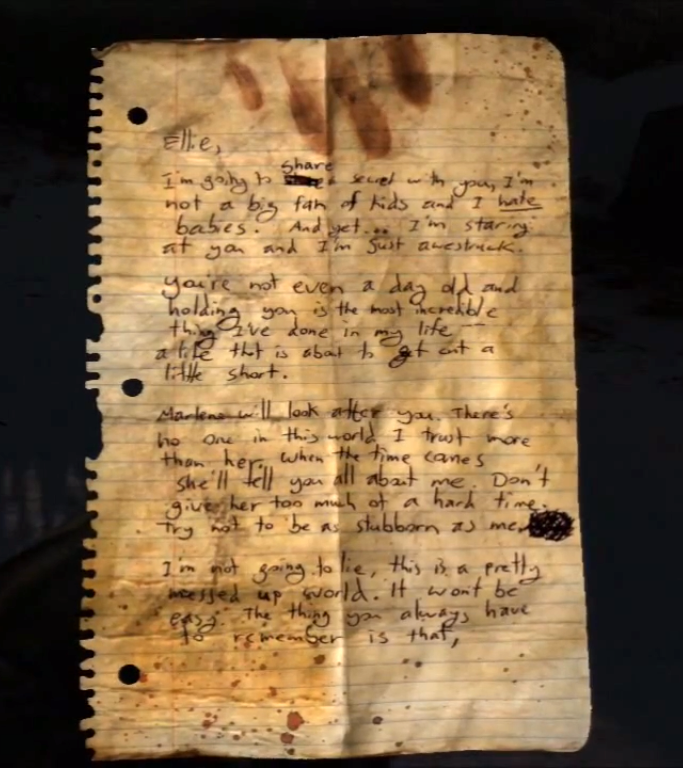 Ellie,
share
I'm going to a secret with you, I'm
not a big fan of kids and I hate
babies. And yet... I'm staring
at you and I'm just awestruck.
You're not even a day old and
holding you is the most incredible
thing I've done in my life --
a life that is about to get cut a
little short.
Marlene will look after you. There's
no one in this world I trust more
than her. When the time comes
she'll tell you all about me. Don't
give her too much of a hard time.
Try not to be as stubborn as me.
I'm not going to lie, this is a pretty
messed up world. It won't be
easy. The thing you always have
to remember is that,